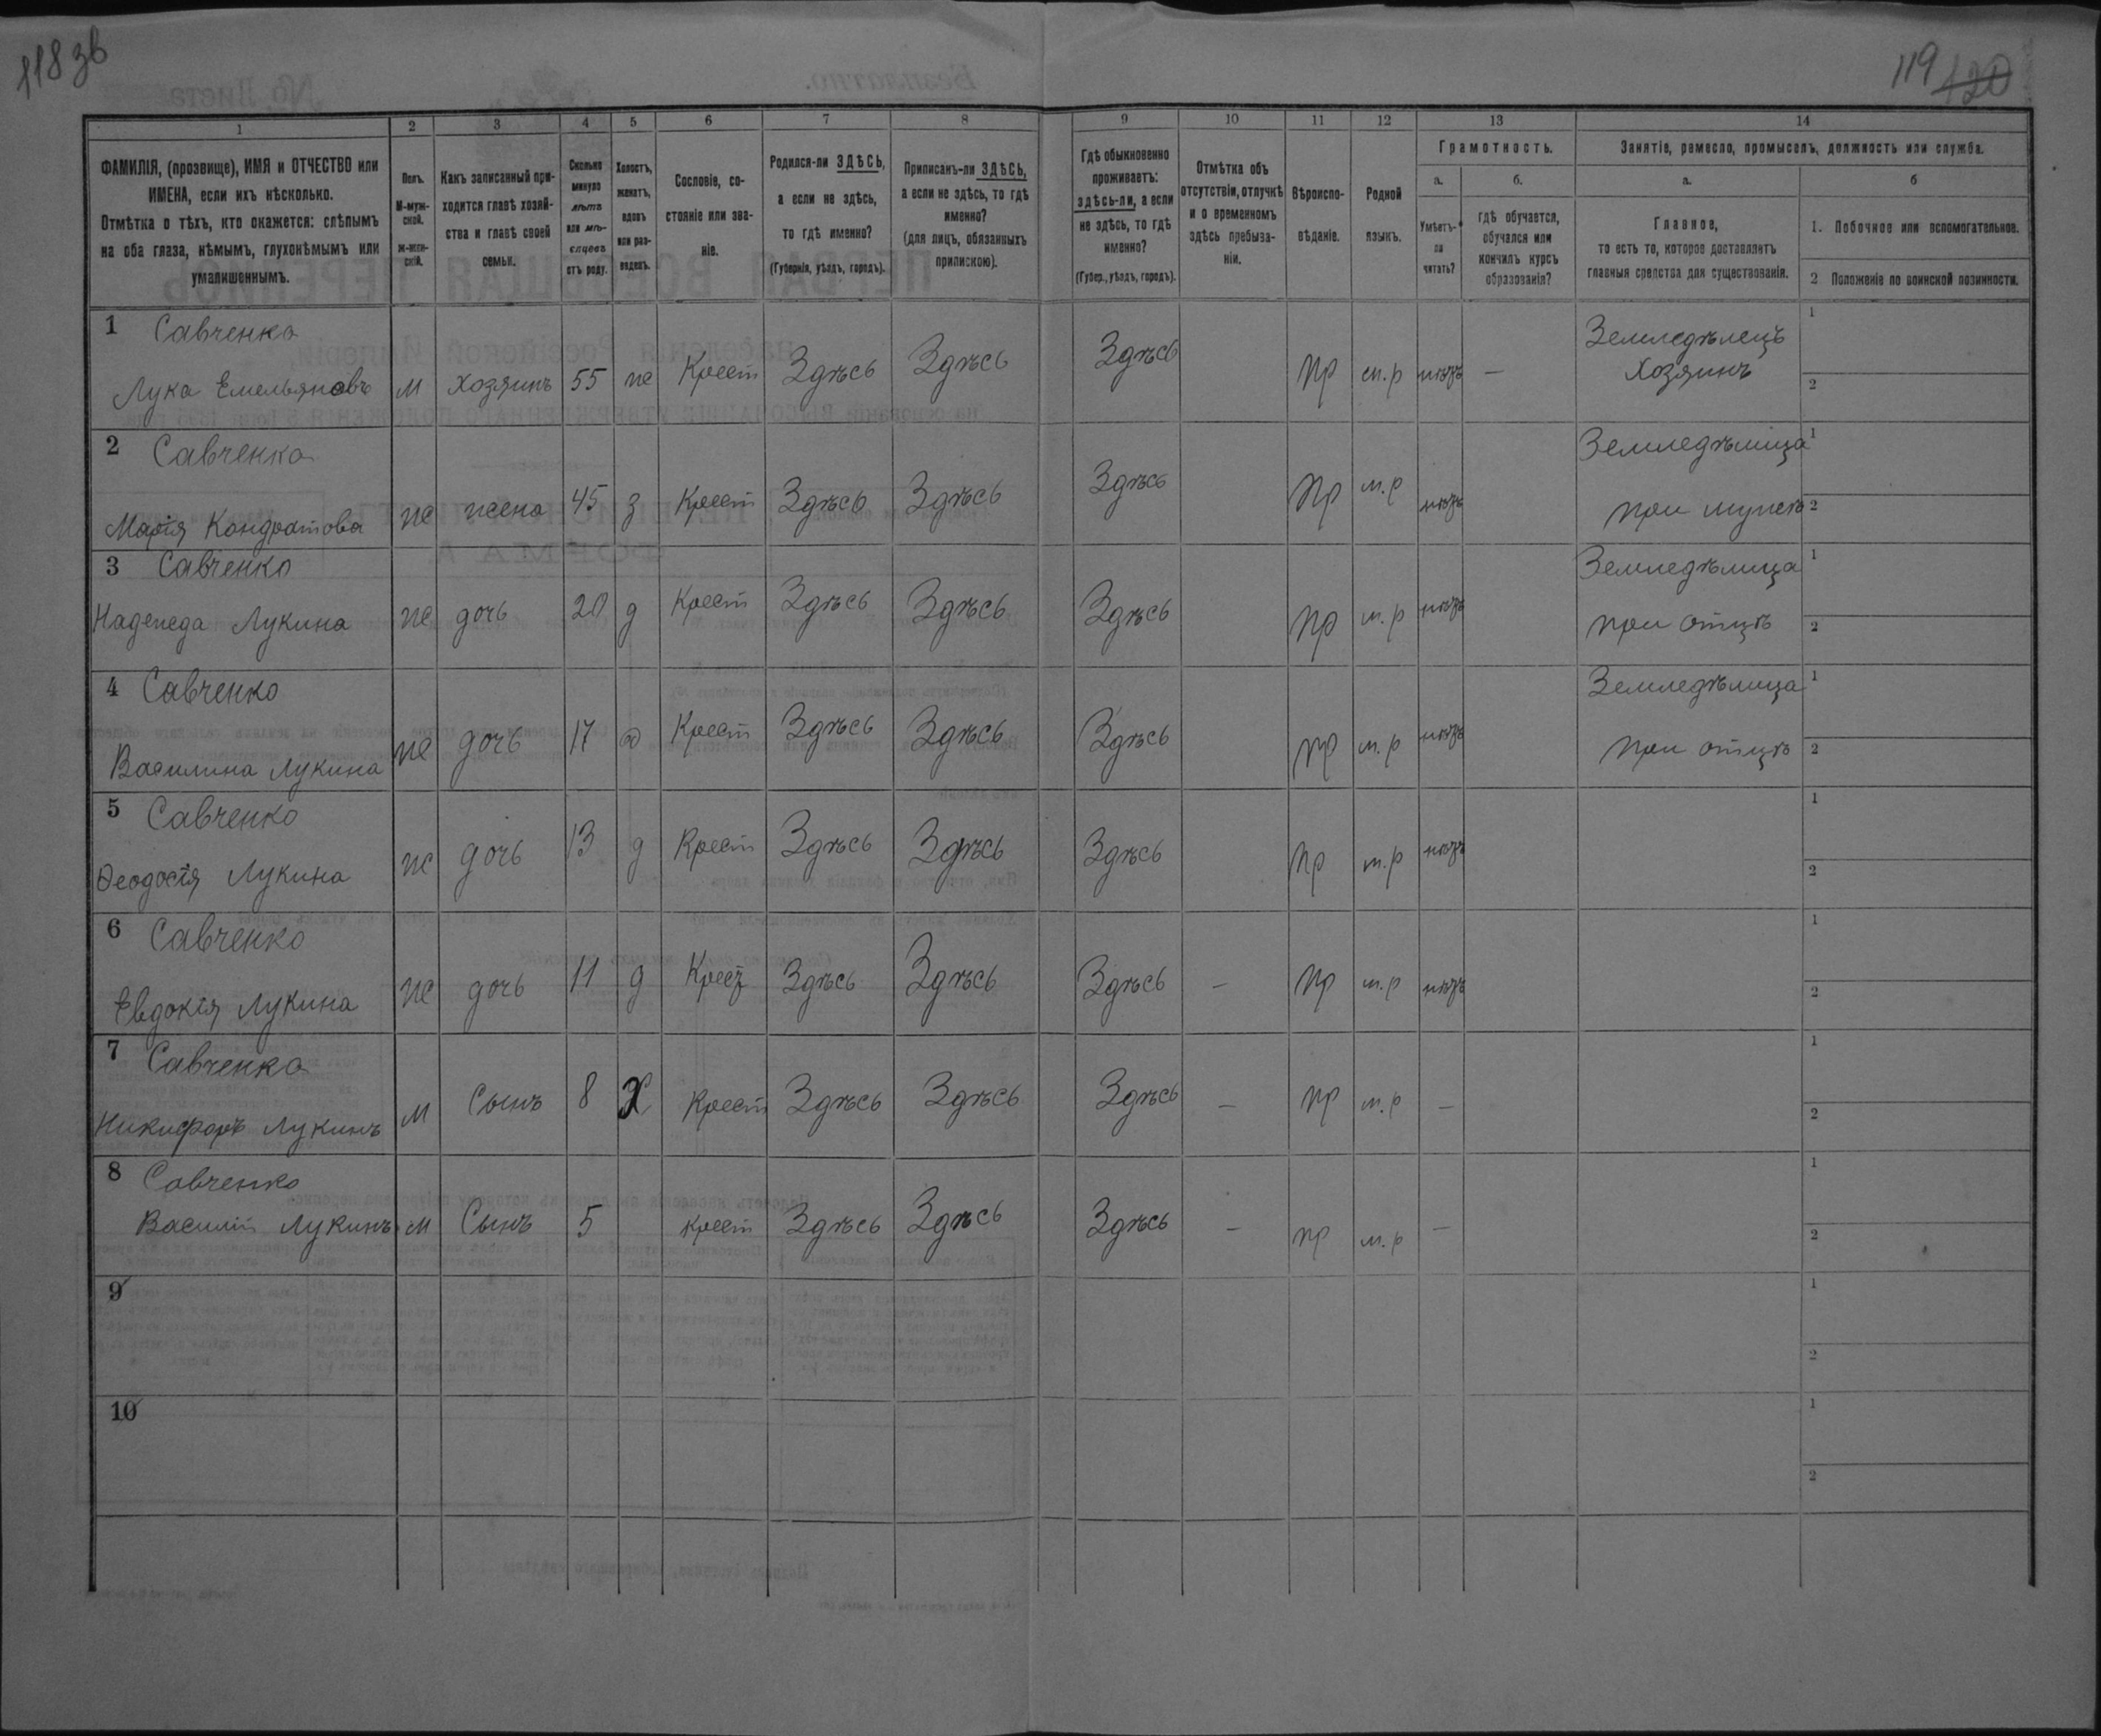 118 зв
119 120
1 2 3 4 5 6 7 8 9 10 11 12 13 14
ФАМИЛІЯ, (прозвище), ИМЯ и ОТЧЕСТВО или ИМЕНА, если ихъ нѣсколько.
Отмѣтка о тѣхъ, кто окажется: слѣпымъ на оба глаза, нѣмымъ, глухонѣмымъ или умалишеннымъ.
Полъ. М-мужской. ж-женскій.
Какъ записанный приходится главѣ хозяйства и главѣ своей семьи.
Сколько минуло лѣтъ или мѣсяцевъ отъ роду.
Холостъ, женатъ, вдовъ или разведенъ.
Сословіе, состояніе или званіе.
Родился-ли ЗДѢСЬ, а если не здѣсь, то гдѣ именно? (Губернія, уѣздъ, городъ).
Приписанъ-ли ЗДѢСЬ, а если не здѣсь, то гдѣ именно? (для лицъ, обязанныхъ припискою).
Гдѣ обыкновенно проживаетъ: здѣсь-ли, а если не здѣсь, то гдѣ именно? (Губер., уѣздъ, городъ).
Отмѣтка объ отсутствіи, отлучкѣ и о временномъ здѣсь пребываніи.
Вѣроисповѣданіе.
Родной языкъ.
Грамотность.
а. Умѣетъ-ли читать?
б. гдѣ обучается, обучался или кончилъ курсъ образованія?
Занятіе, ремесло, промыселъ, должность или служба.
а. Главное, то есть то, которое доставляетъ главныя средства для существованія.
б
1. Побочное или вспомогательное.
2 Положеніе по воинской повинности.
1 Савченко Земледѣлецъ 1
Лука Емельяновъ м Хозяинъ 55 же Крест Здѣсь Здѣсь Здѣсь пр м.р нѣтъ — Хозяинъ 2
2 Савченко Земледѣлица 1
Марія Кондратова же жена 45 з Крест Здѣсь Здѣсь Здѣсь пр м.р нѣтъ при мужѣ 2
3 Савченко Земледѣлица 1
Надежда Лукина же дочь 20 д Крест Здѣсь Здѣсь Здѣсь пр м.р нѣтъ при отцѣ 2
4 Савченко Земледѣлица 1
Василина Лукина же дочь 17 д Крест Здѣсь Здѣсь Здѣсь пр м.р нѣтъ при отцѣ 2
5 Савченко 1
Ѳеодосія Лукина же дочь 13 д Крест Здѣсь Здѣсь Здѣсь пр м.р нѣтъ 2
6 Савченко 1
Евдокія Лукина же дочь 11 д Крест Здѣсь Здѣсь Здѣсь — пр м.р нѣтъ 2
7 Савченко 1
Никифоръ Лукинъ м Сынъ 8 Х Крест Здѣсь Здѣсь Здѣсь — пр м.р — 2
8 Савченко 1
Василій Лукинъ м Сынъ 5 Крест Здѣсь Здѣсь Здѣсь — пр м.р — 2
9 1
2
10 1
2